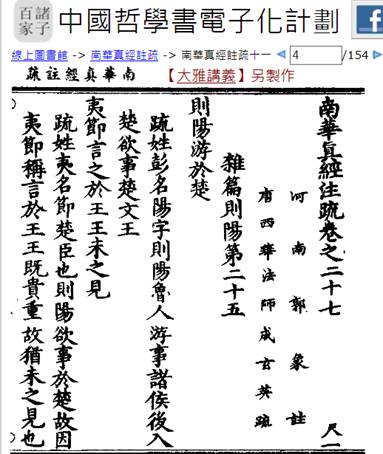 諸子百家
中國哲學書電子化計劃
線上圖書館 -> 南華真經註疏 -> 南華真經註疏十一
4
/154
南華真經註疏
【大雅講義】另製作
南華真經注疏卷之二十七
尺一
河南郭象註
唐西華法師成玄英疏
雜篇則陽第二十五
則陽游於楚
疏姓彭名陽字則陽魯人游事諸侯後入
楚欲事楚文王
夷節言之於王王未之見
疏姓夷名節楚臣也則陽欲事於楚故因
夷節稱言於王王既貴重故猶未之見也